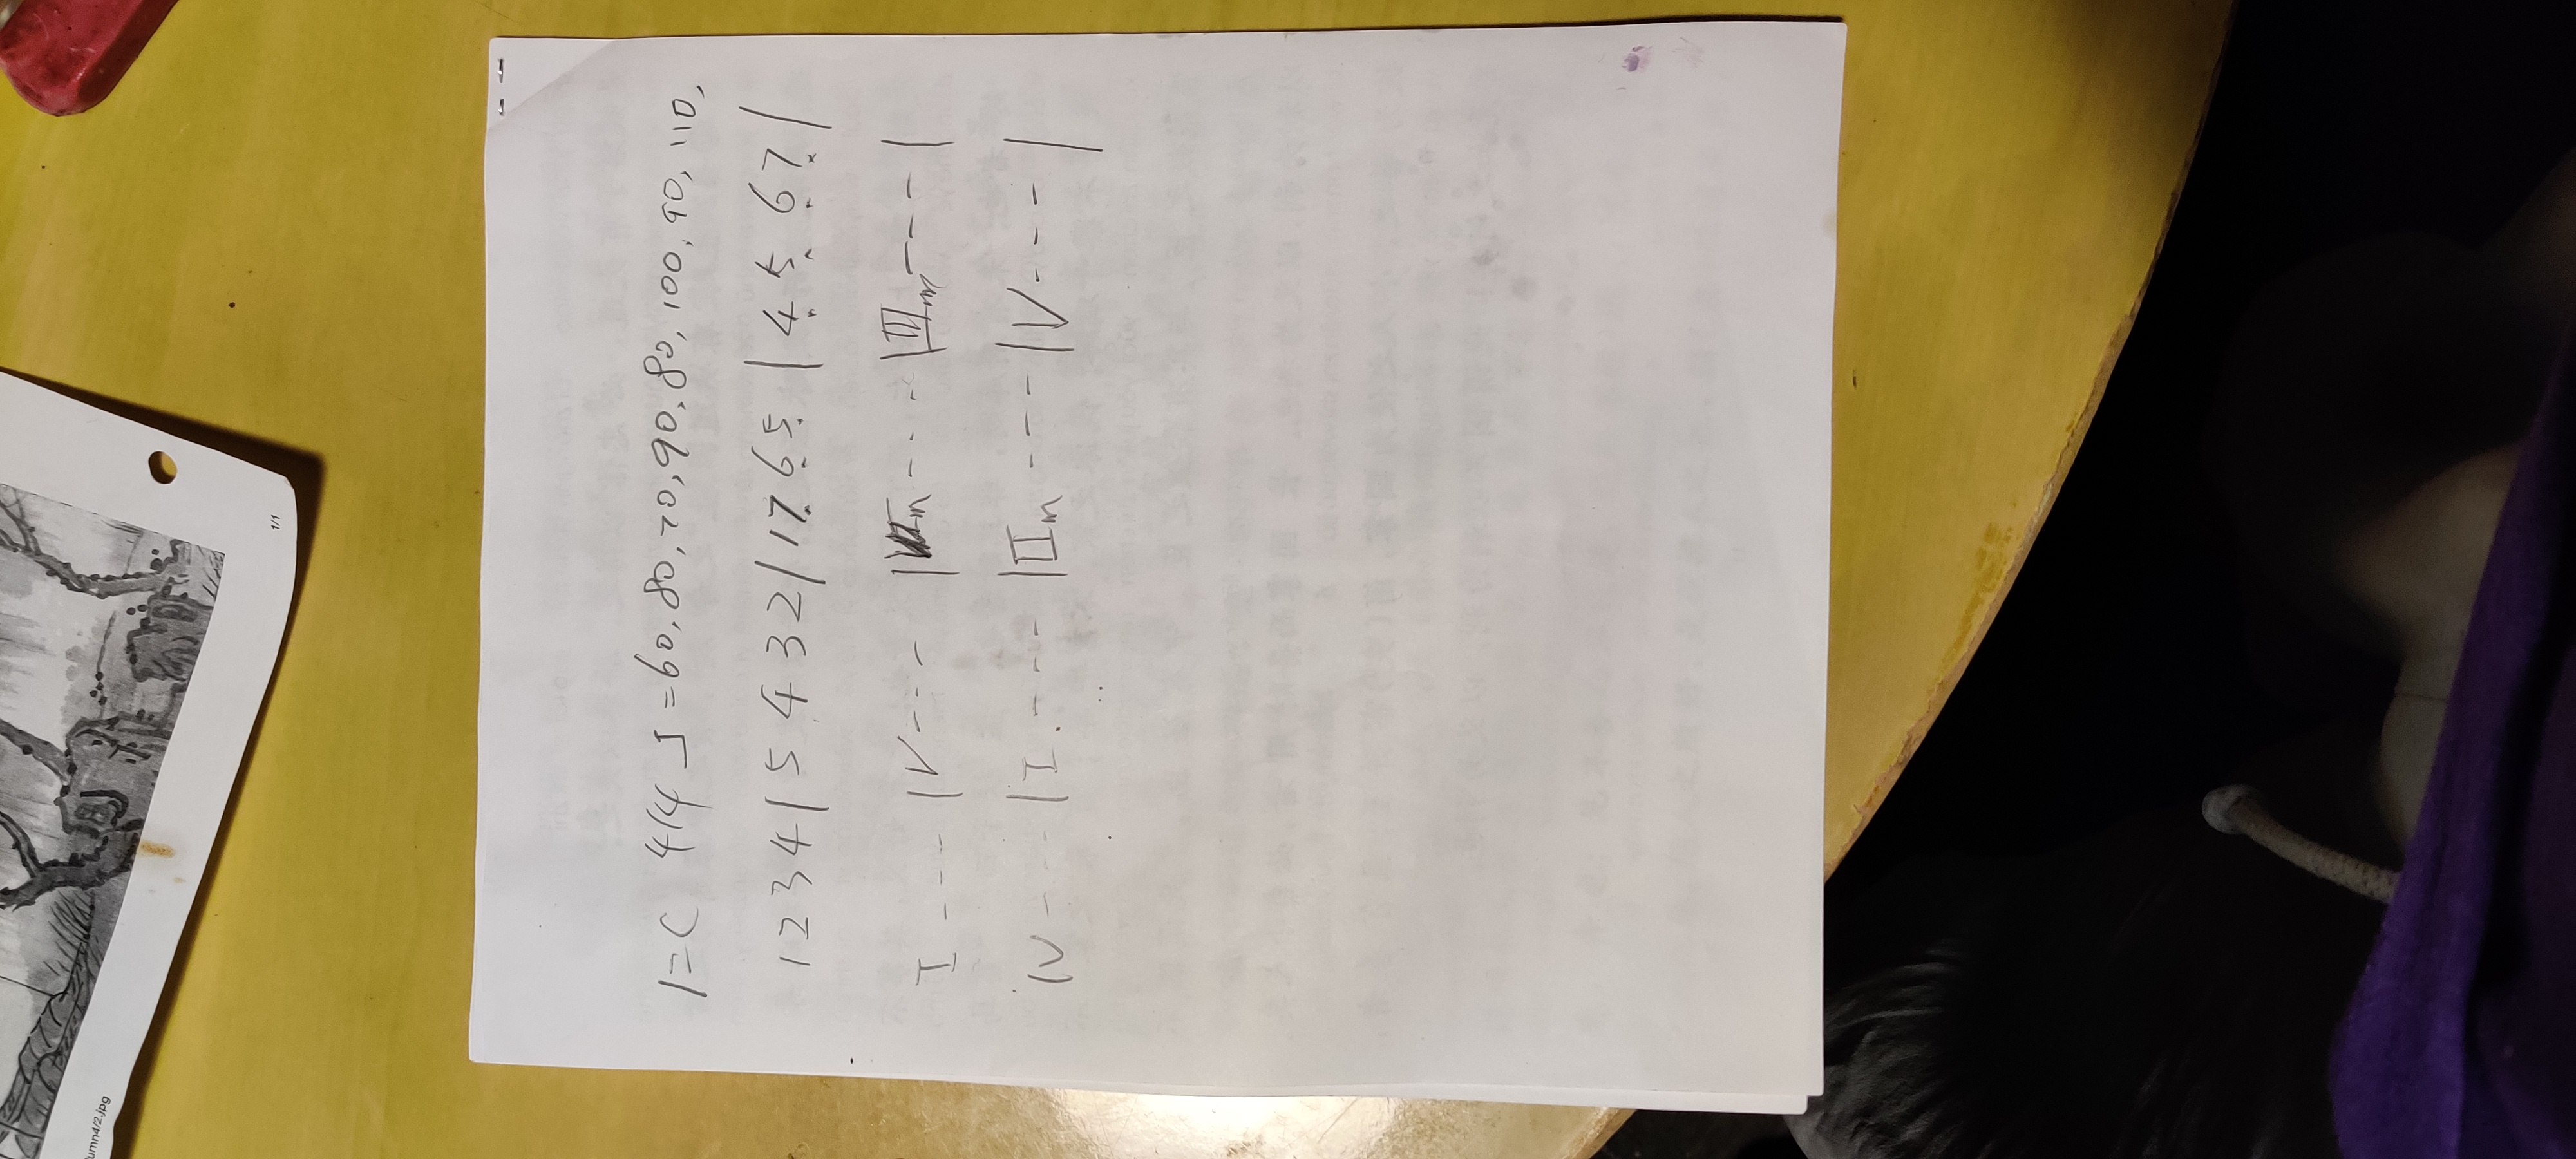 1=C 4/4 ♩=60,80,70,90,80,100,90,110,
1234|5432|1765|4567|
I---- |V---- |m---- |IIIm---- |
IV---- |I---- |IIm---- |V---- |
1/1
umn4/2.jpg